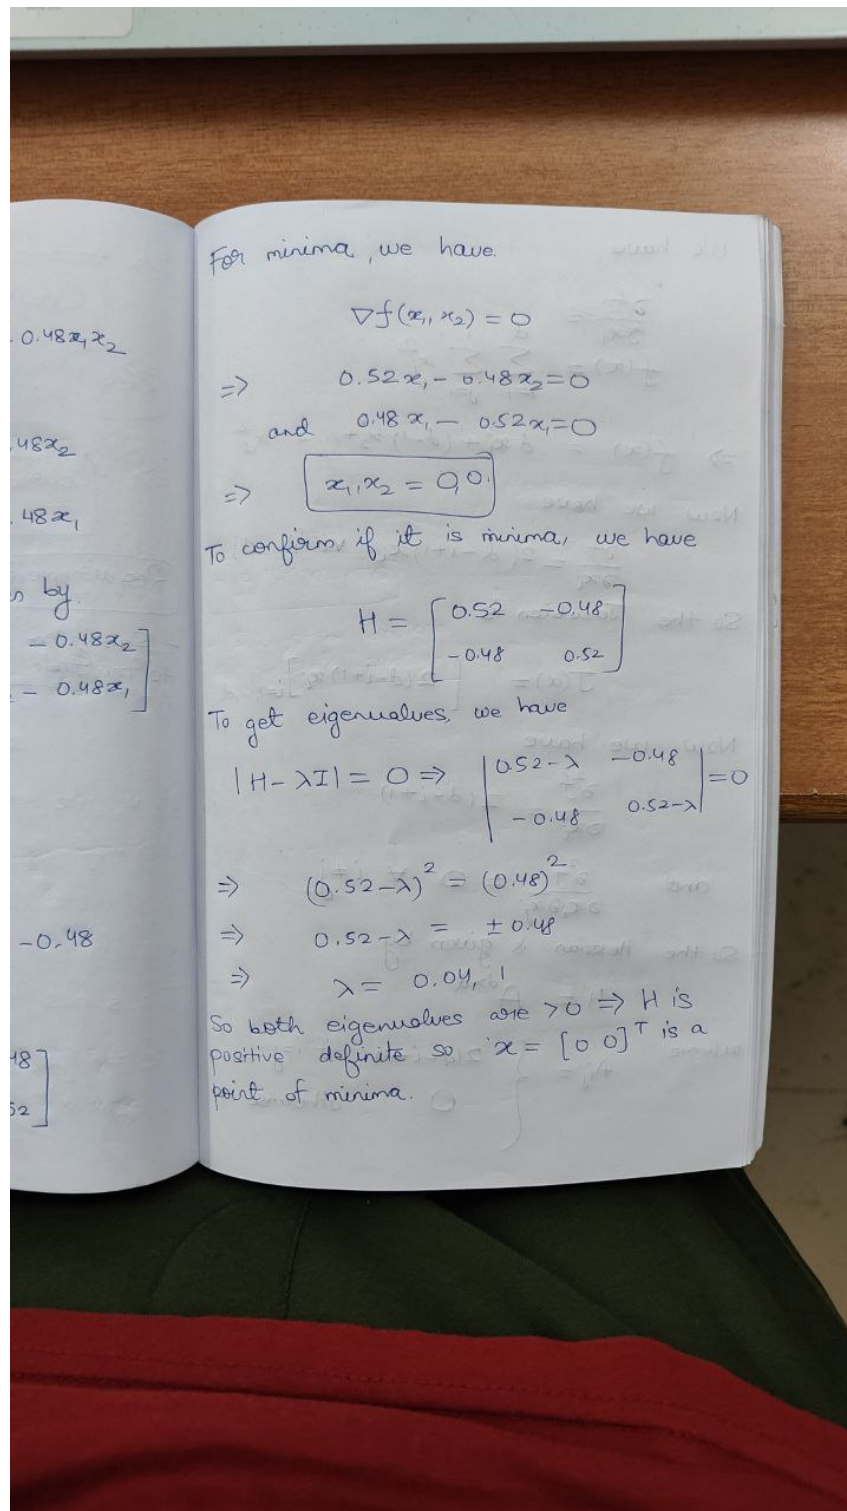 0.48x₁x₂
48x₂
48x₁
by
- 0.48x₂]
- 0.48x₁]
-0.48
18]
52]
For minima, we have.
∇f(x₁, x₂) = 0
=> 0.52x₁ - 0.48x₂ = 0
and 0.48x₁ - 0.52x₁ = 0
=> x₁, x₂ = 0,0.
To confirm if it is minima, we have
H = [0.52 -0.48
-0.48 0.52]
To get eigenvalues, we have
|H-λI| = 0 => |0.52-λ -0.48
-0.48 0.52-λ| = 0
=> (0.52-λ)² = (0.48)²
=> 0.52-λ = ± 0.48
=> λ = 0.04, 1
So both eigenvalves are >0 => H is
positive definite so x = [0 0]ᵀ is a
point of minima.